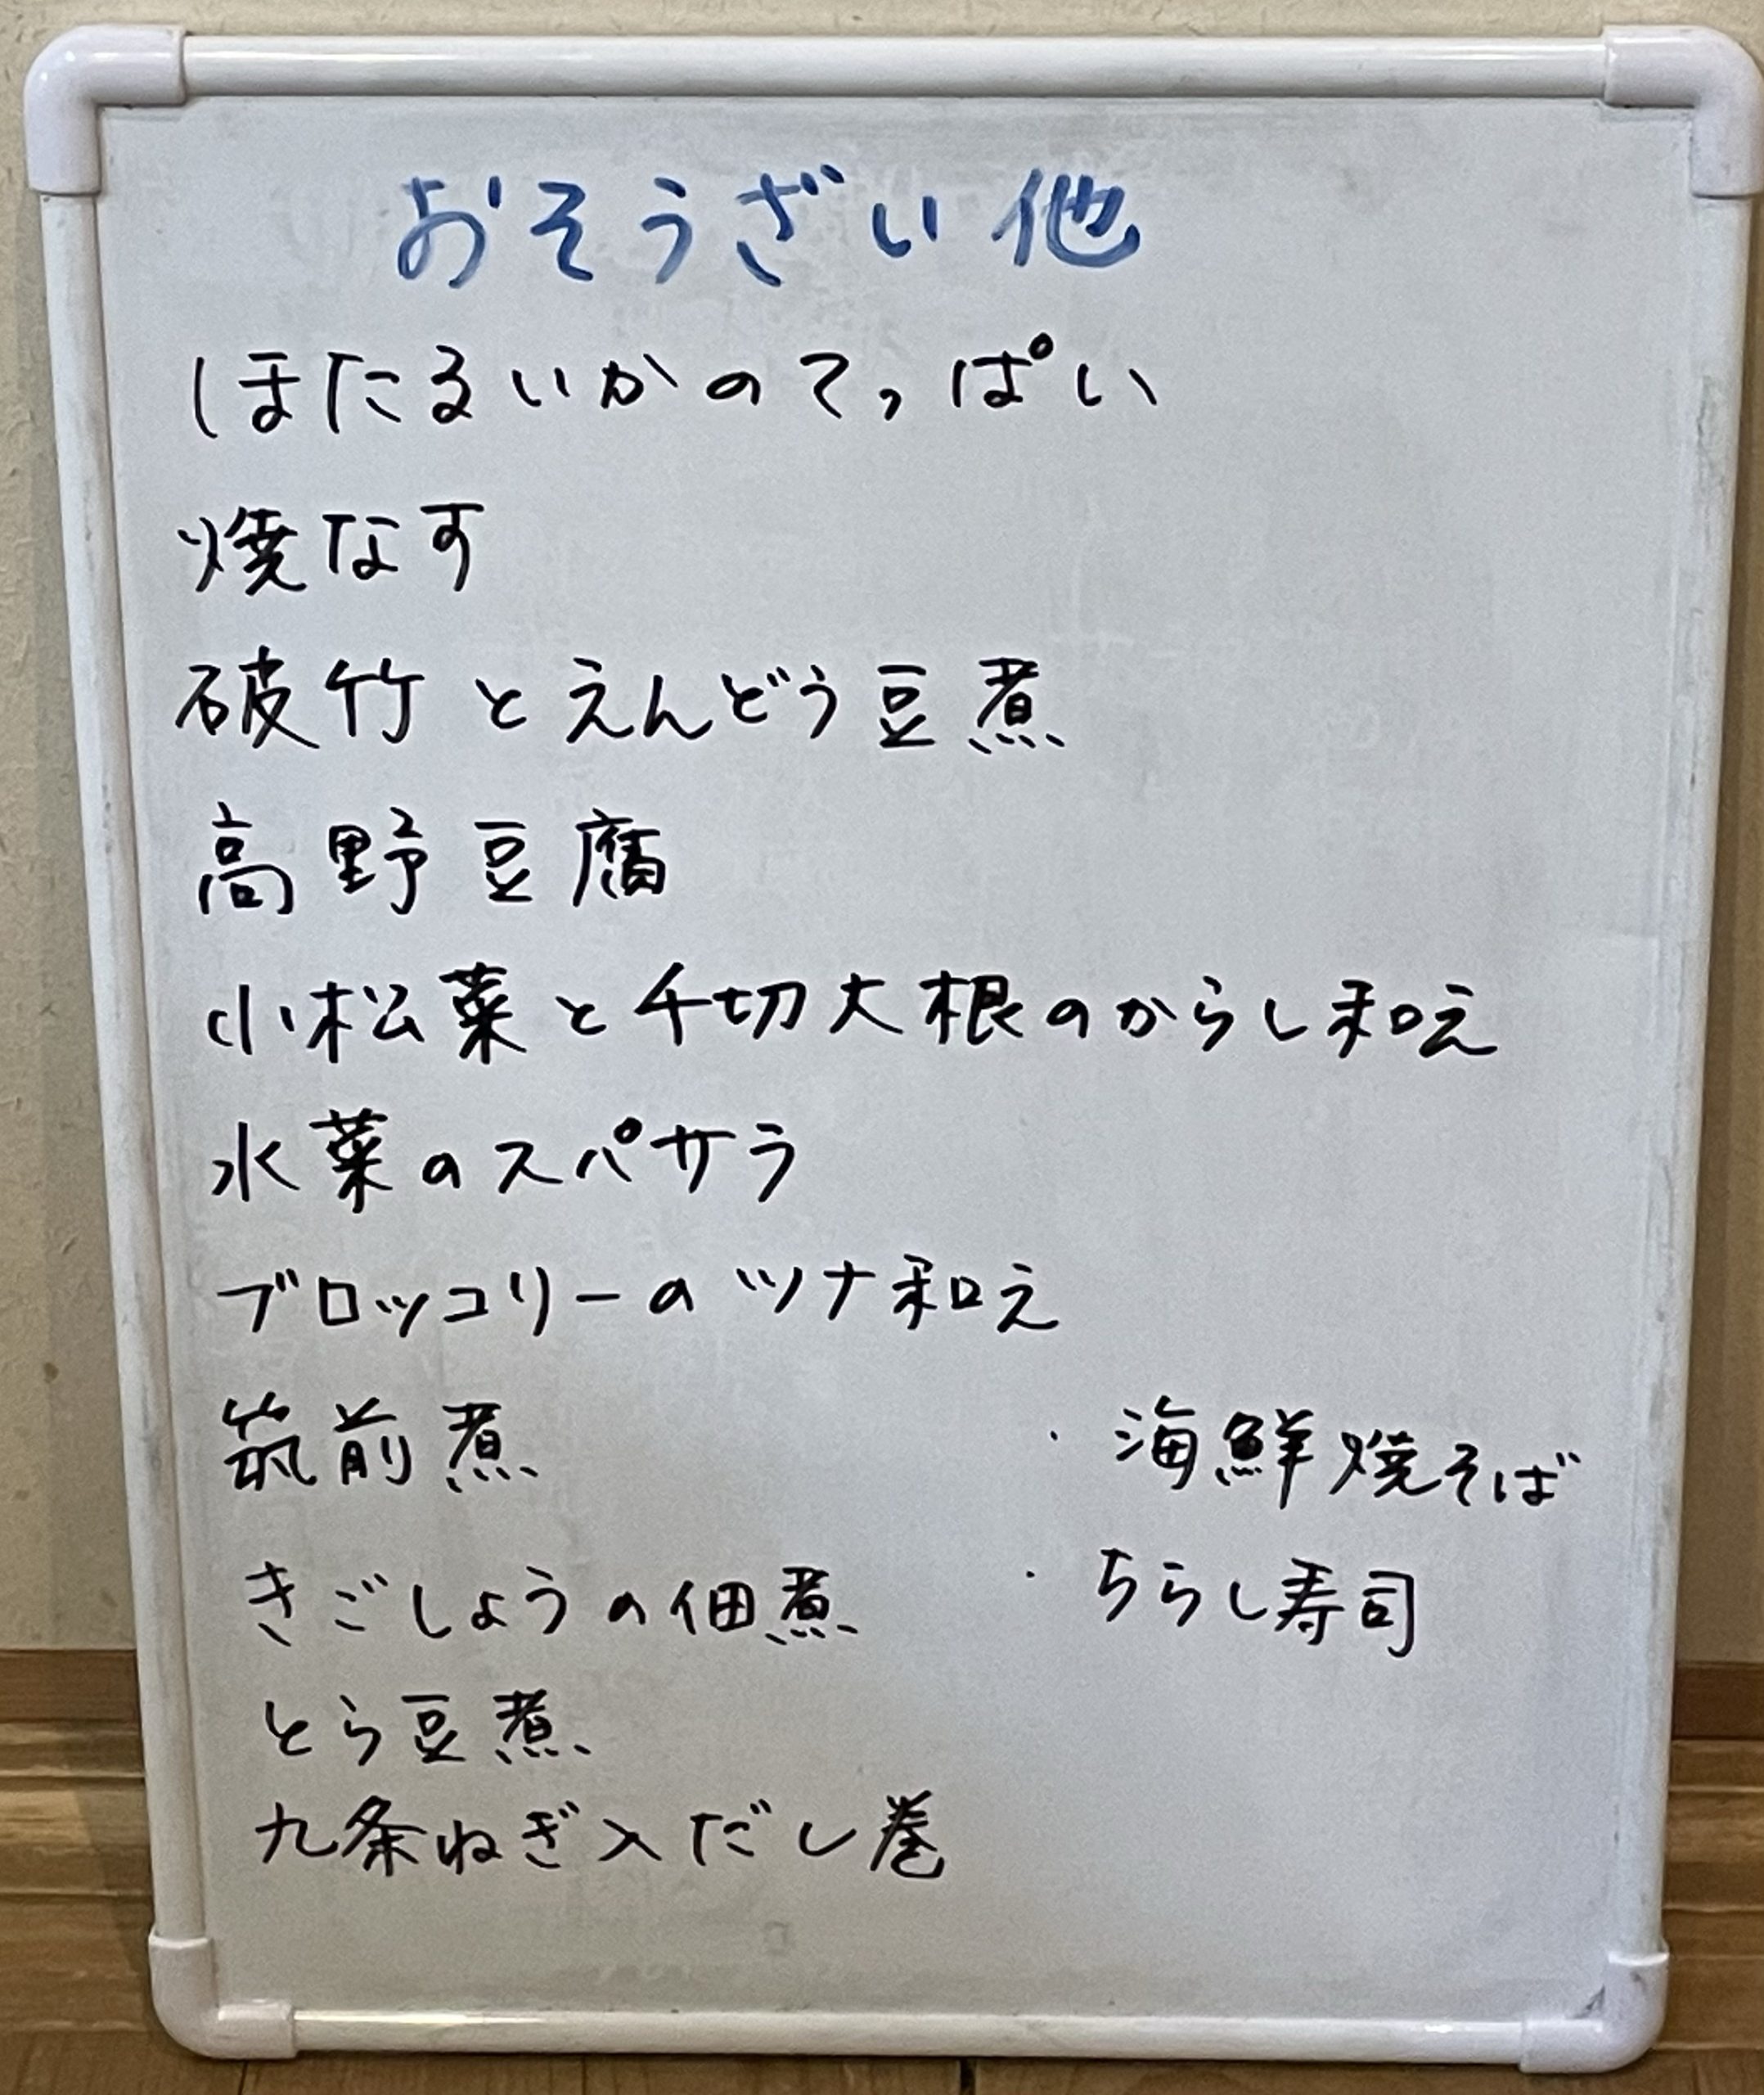 おそうざい他
ほたるいかのてっぱい
焼なす
破竹とえんどう豆煮
高野豆腐
小松菜と千切大根のからし和え
水菜のスパサラ
ブロッコリーのツナ和え
筑前煮
きごしょうの佃煮
とら豆煮
九条ねぎ入だし巻
・海鮮焼そば
・ちらし寿司